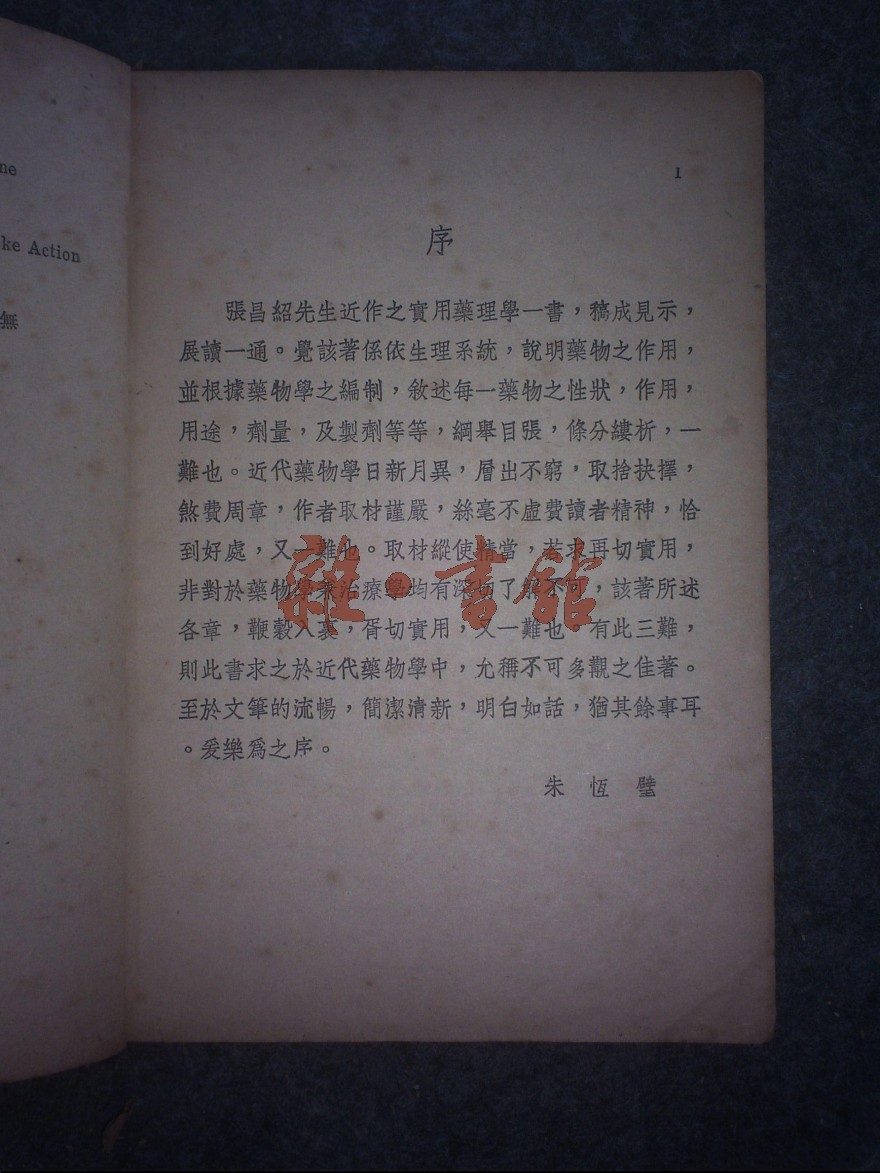 ne
ke Action
無
1
序
張昌紹先生近作之實用藥理學一書，稿成見示，
展讀一通。覺該著係依生理系統，說明藥物之作用，
並根據藥物學之編制，敘述每一藥物之性狀，作用，
用途，劑量，及製劑等等，綱舉目張，條分縷析，一
難也。近代藥物學日新月異，層出不窮，取捨抉擇，
煞費周章，作者取材謹嚴，絲毫不虛費讀者精神，恰
到好處，又一難也。取材縱使精當，若求再切實用，
非對於藥物學兼治療學均有深切了解不可，該著所述
各章，鞭穀入裏，胥切實用，又一難也。有此三難，
則此書求之於近代藥物學中，允稱不可多觀之佳著。
至於文筆的流暢，簡潔清新，明白如話，猶其餘事耳
。爰樂爲之序。
朱恆璧
雜·書館